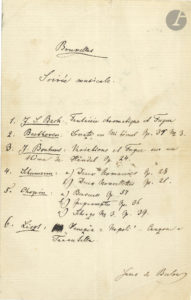 Bruxelles
Soirée musicale.
1. J. S. Bach. Fantaisie chromatique et Fugue
2. Beethoven. Sonate en Mi bémol Op. 31 No 3.
3. J. Brahms. Variations et Fugue sur un
thème de Händel Op. 24
4. Schumann. a) Deux Romances Op. 28
b) Deux Novellettes Op. 21.
5. Chopin. a) Berceuse Op. 57
b) Impromptu Op. 36
c) Scherzo No 3. Op. 39.
6. Liszt. "Venezia e Napoli"
Tarantella